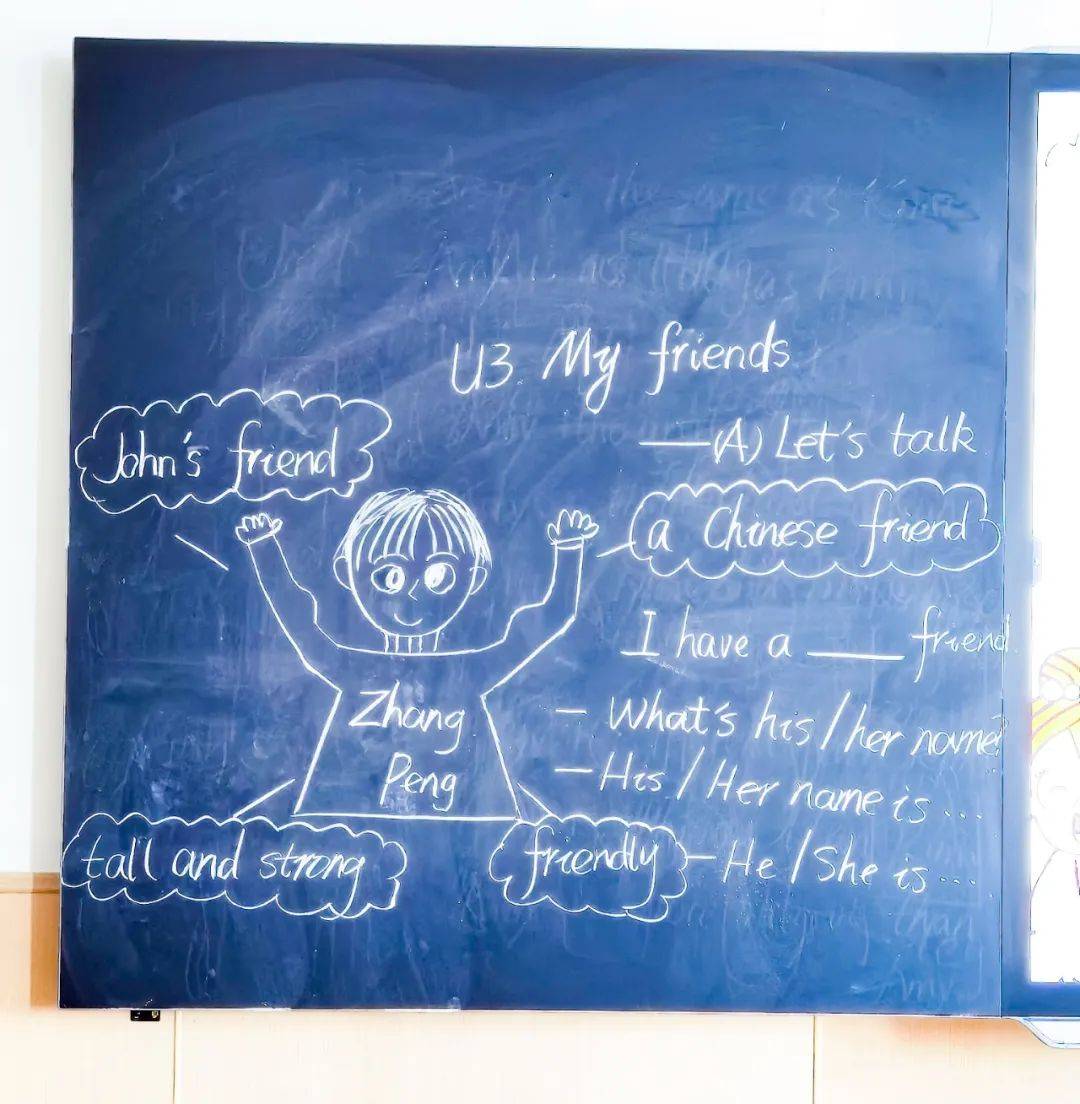 U3. My friends
—(A) Let's talk
John's friend
a Chinese friend
I have a ____ friend.
Zhang
Peng
- What's his/her name?
- His/Her name is ...
tall and strong
friendly
- He/She is ...